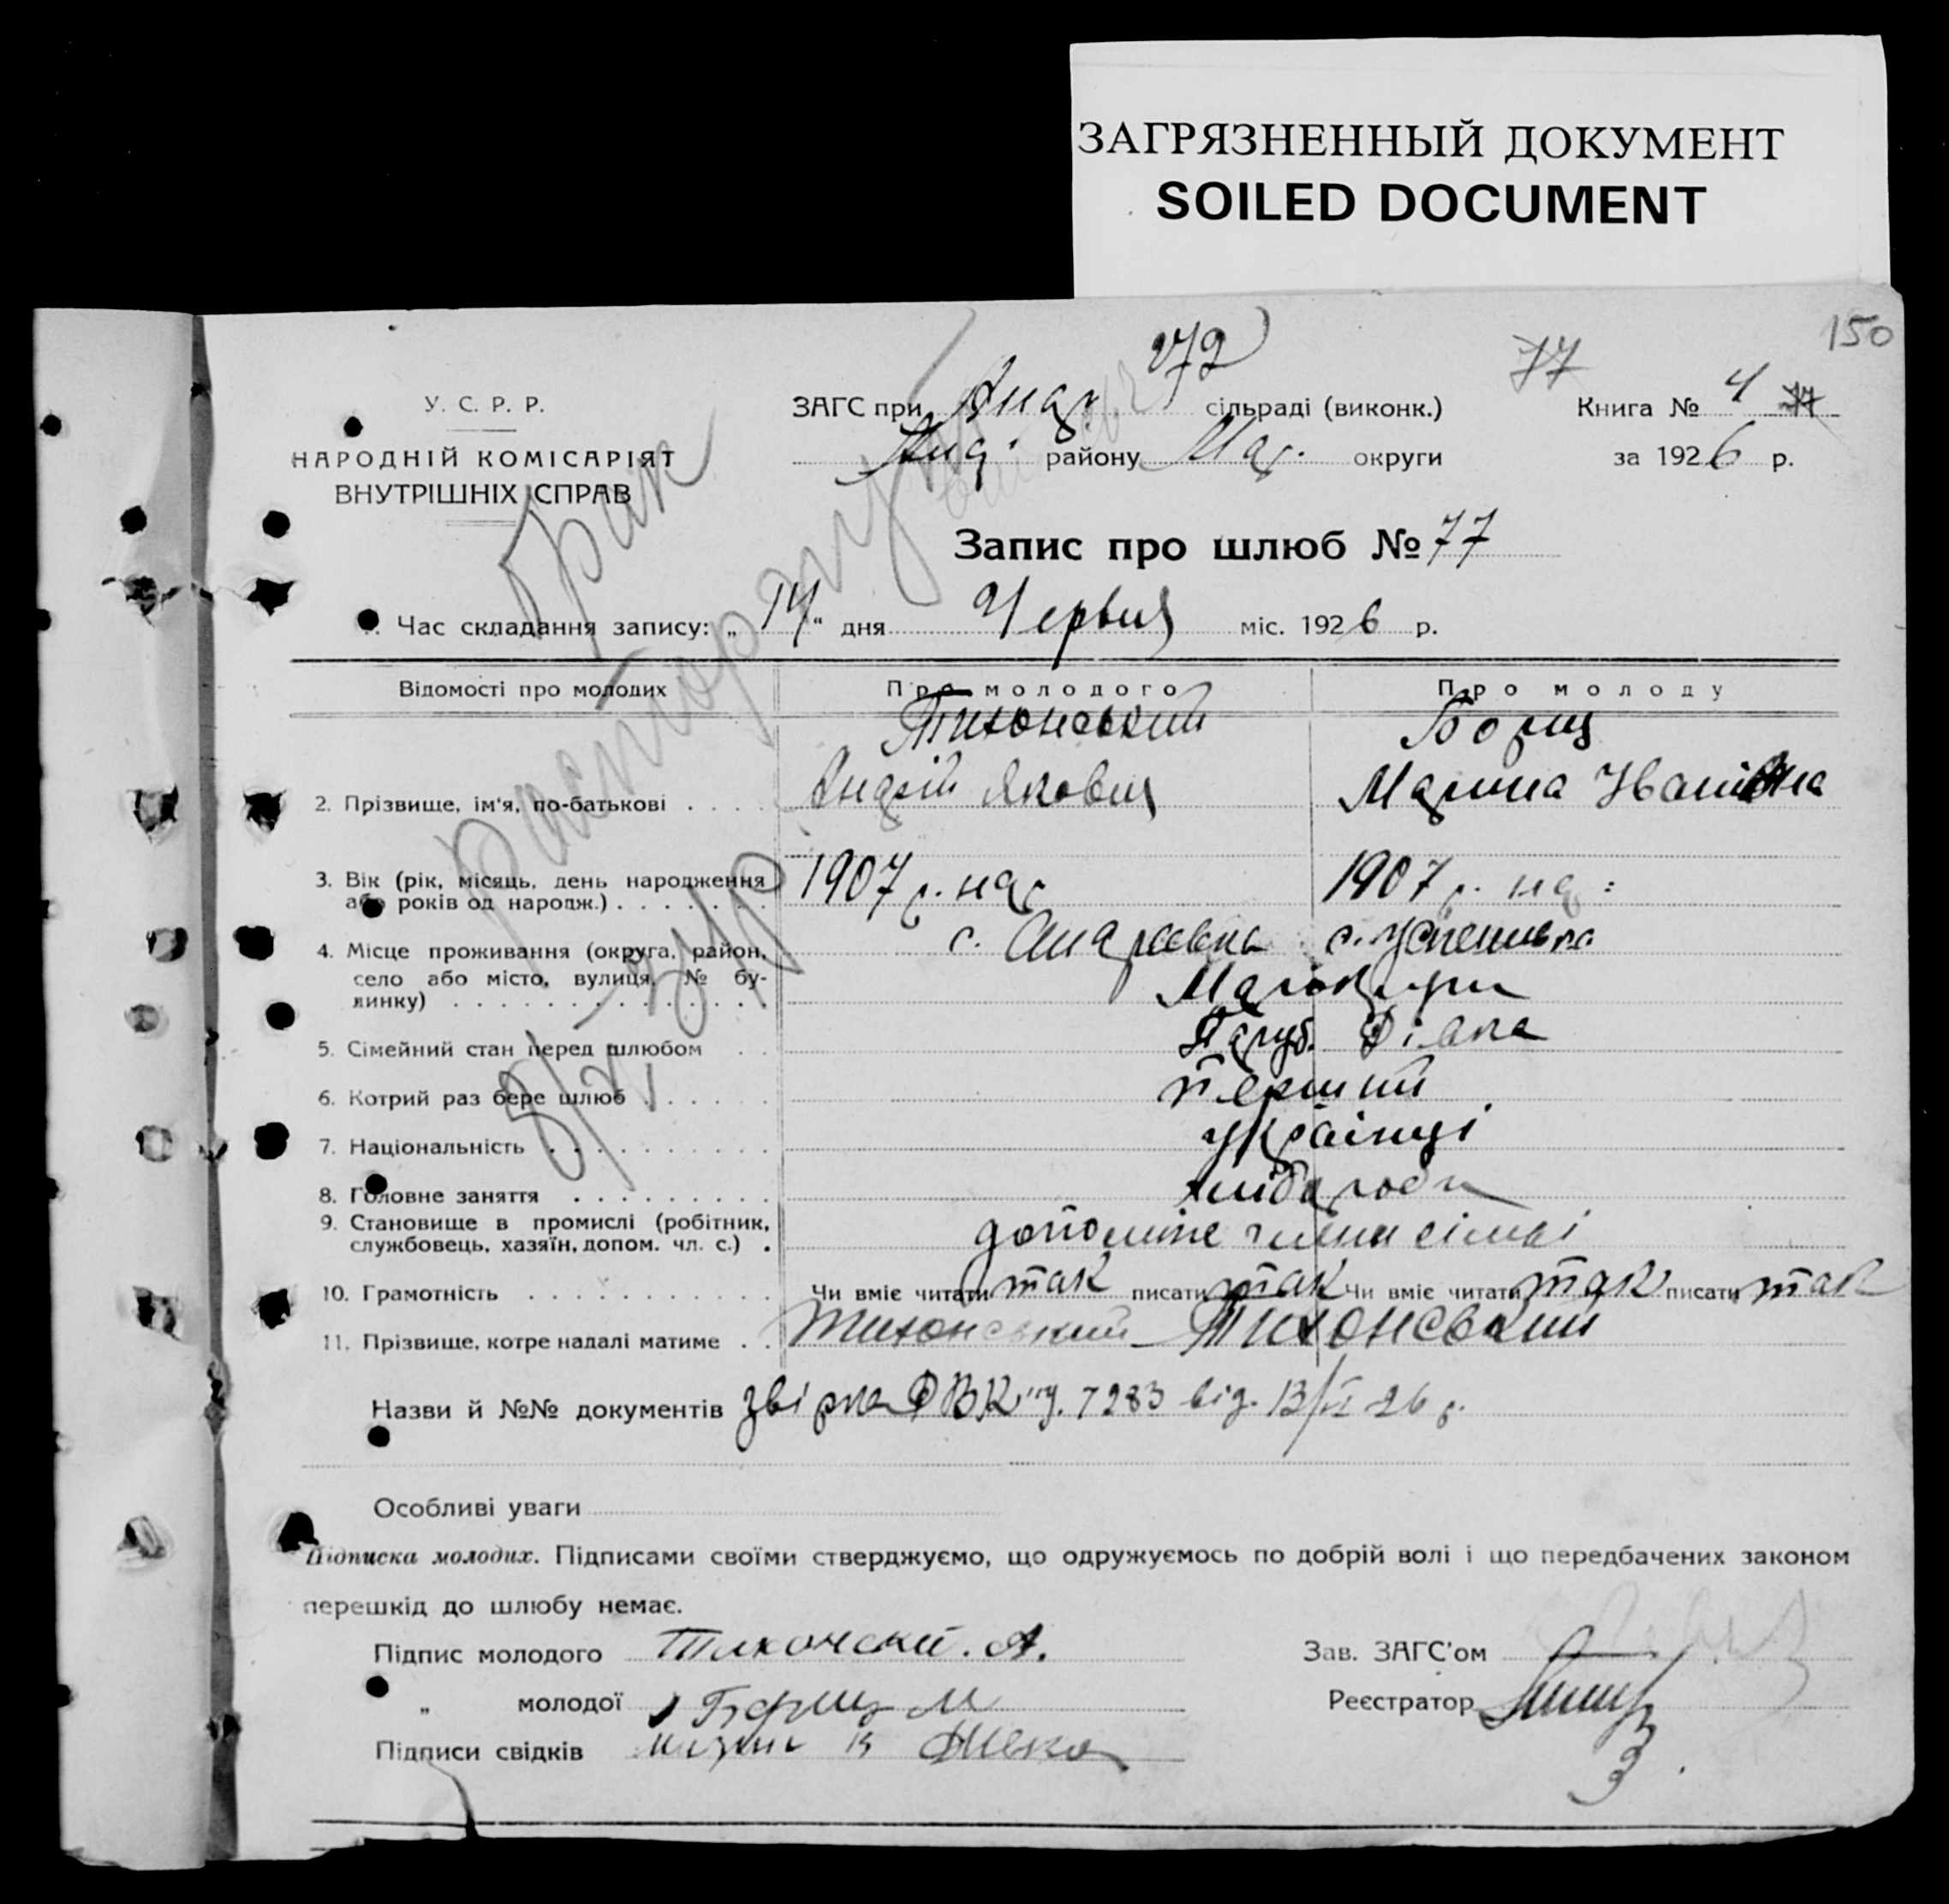 ЗАГРЯЗНЕННЫЙ ДОКУМЕНТ
SOILED DOCUMENT
150
272
77
У. С. Р. Р.
НАРОДНІЙ КОМІСАРІЯТ
ВНУТРІШНІХ СПРАВ
ЗАГС при Андр. сільраді (виконк.)
Анд. району Мар. округи
Книга № 4 77
за 1926 р.
Запис про шлюб № 77
Час складання запису: „14“ дня Червня міс. 1926 р.
Брак
расторгнут
Відомості про молодих
Про молодого
Про молоду
2. Прізвище, ім'я, по-батькові . . . .
Тихонський
Андрій Якович
Борщ
Марина Іванівна
3. Вік (рік, місяць, день народження
або років од народж.) . . . . . . .
1907 р. нар
1907 р. нар:
4. Місце проживання (округа, район,
село або місто, вулиця, № бу-
динку) . . . . . . . . . . . . .
с. Андреевка
с. Успенивка
Маріюпи
5. Сімейний стан перед шлюбом . .
Паруб. Дівка
6. Котрий раз бере шлюб . . . . . .
перший
7. Національність . . . . . . . . . .
українці
8. Головне заняття . . . . . . . . .
хлібороби
9. Становище в промислі (робітник,
службовець, хазяїн, допом. чл. с.) .
члени сімьі
10. Грамотність . . . . . . . . . . .
Чи вміє читати так писати так Чи вміє читати так писати так
11. Прізвище, котре надалі матиме . .
Тихонський – Тихонський
Назви й №№ документів звірка ДВК 7283 від. 13/VI 26 р.
Особливі уваги
Підписка молодих. Підписами своїми стверджуємо, що одружуємось по добрій волі і що передбачених законом
перешкід до шлюбу немає.
Підпис молодого Тихонский. А.
„ молодої Борщ М
Підписи свідків
Зав. ЗАГС'ом
Реєстратор